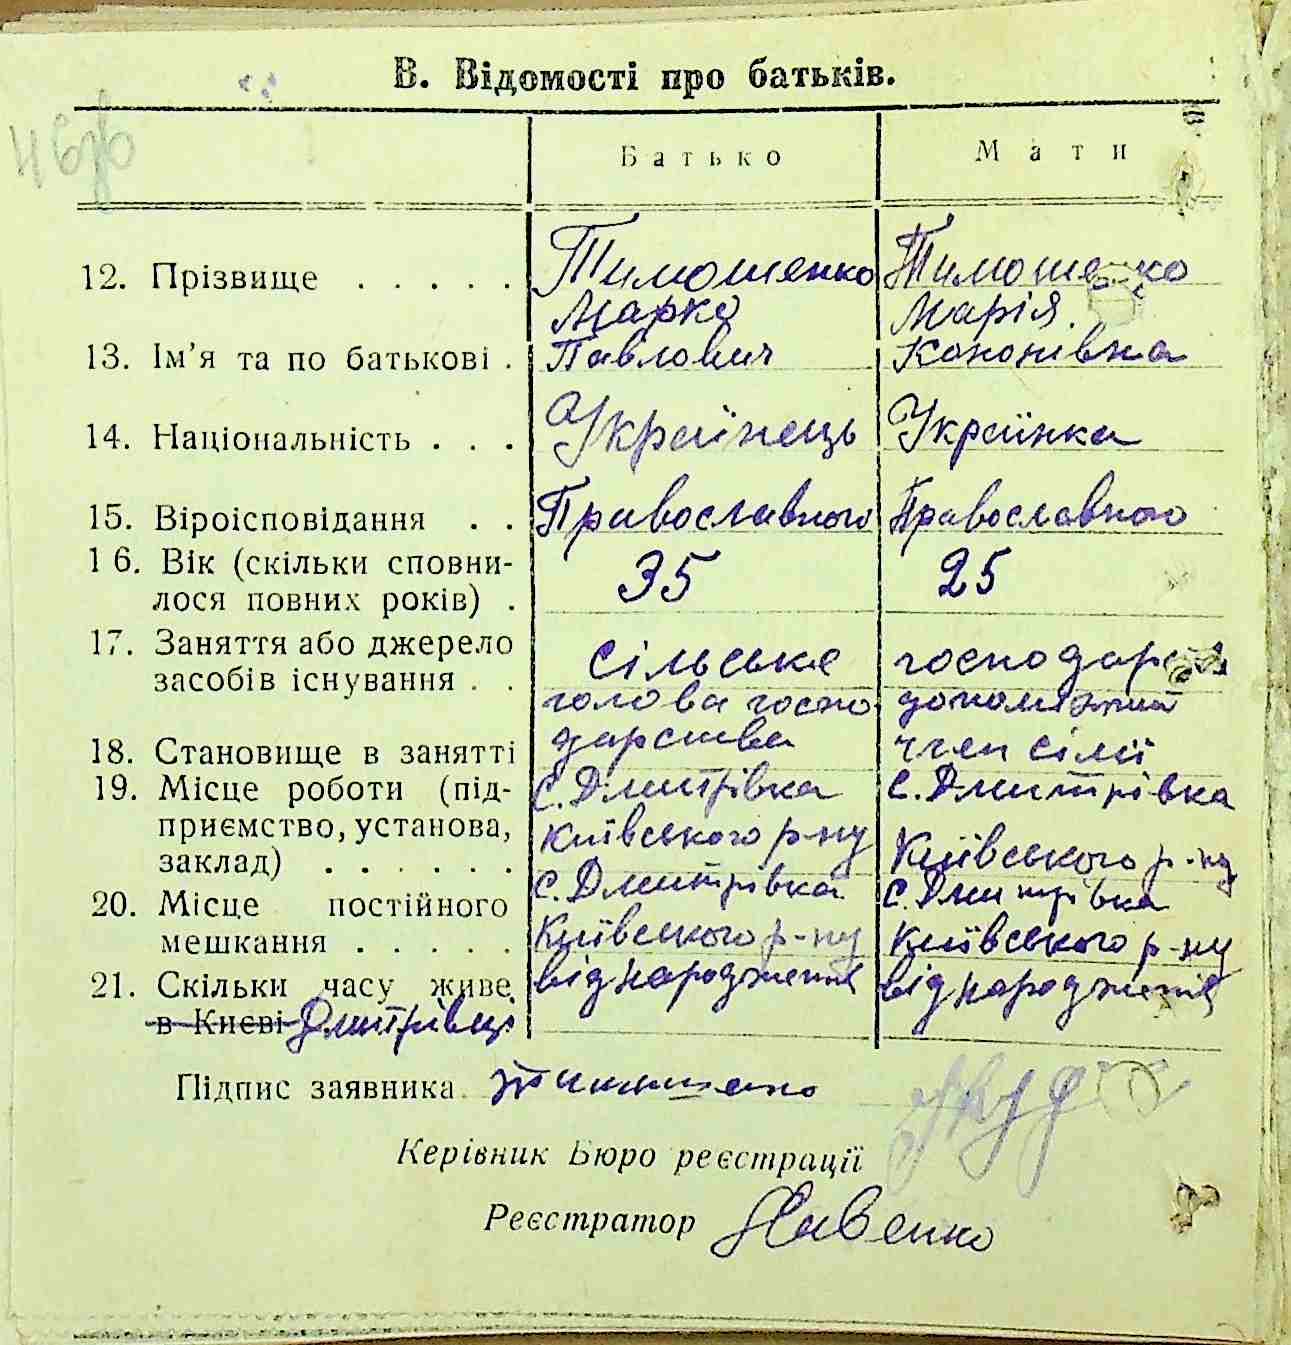 В. Відомості про батьків.
Батько Мати
12. Прізвище . . . . . Тимошенко Тимошенко
Марко Марія.
13. Ім'я та по батькові . Павлович Кононівна
14. Національність . . . Українець Українка
15. Віроісповідання . . Православного Православного
16. Вік (скільки сповни- 35 25
лося повних років) .
17. Заняття або джерело сільське господар
засобів існування . . голова госпо допоміжний
18. Становище в занятті дарства член сімї
19. Місце роботи (під- с. Дмитрівка с. Дмитрівка
приємство, установа, Київського р-ну Київського р-ну
заклад) . . . . . .
20. Місце постійного с. Дмитрівка с. Дмитрівка
мешкання . . . . . Київського р-ну Київського р-ну
21. Скільки часу живе від народження від народження
в Києві Дмитрівці
Підпис заявника. Тимошенко
Керівник Бюро реєстрації
Реєстратор